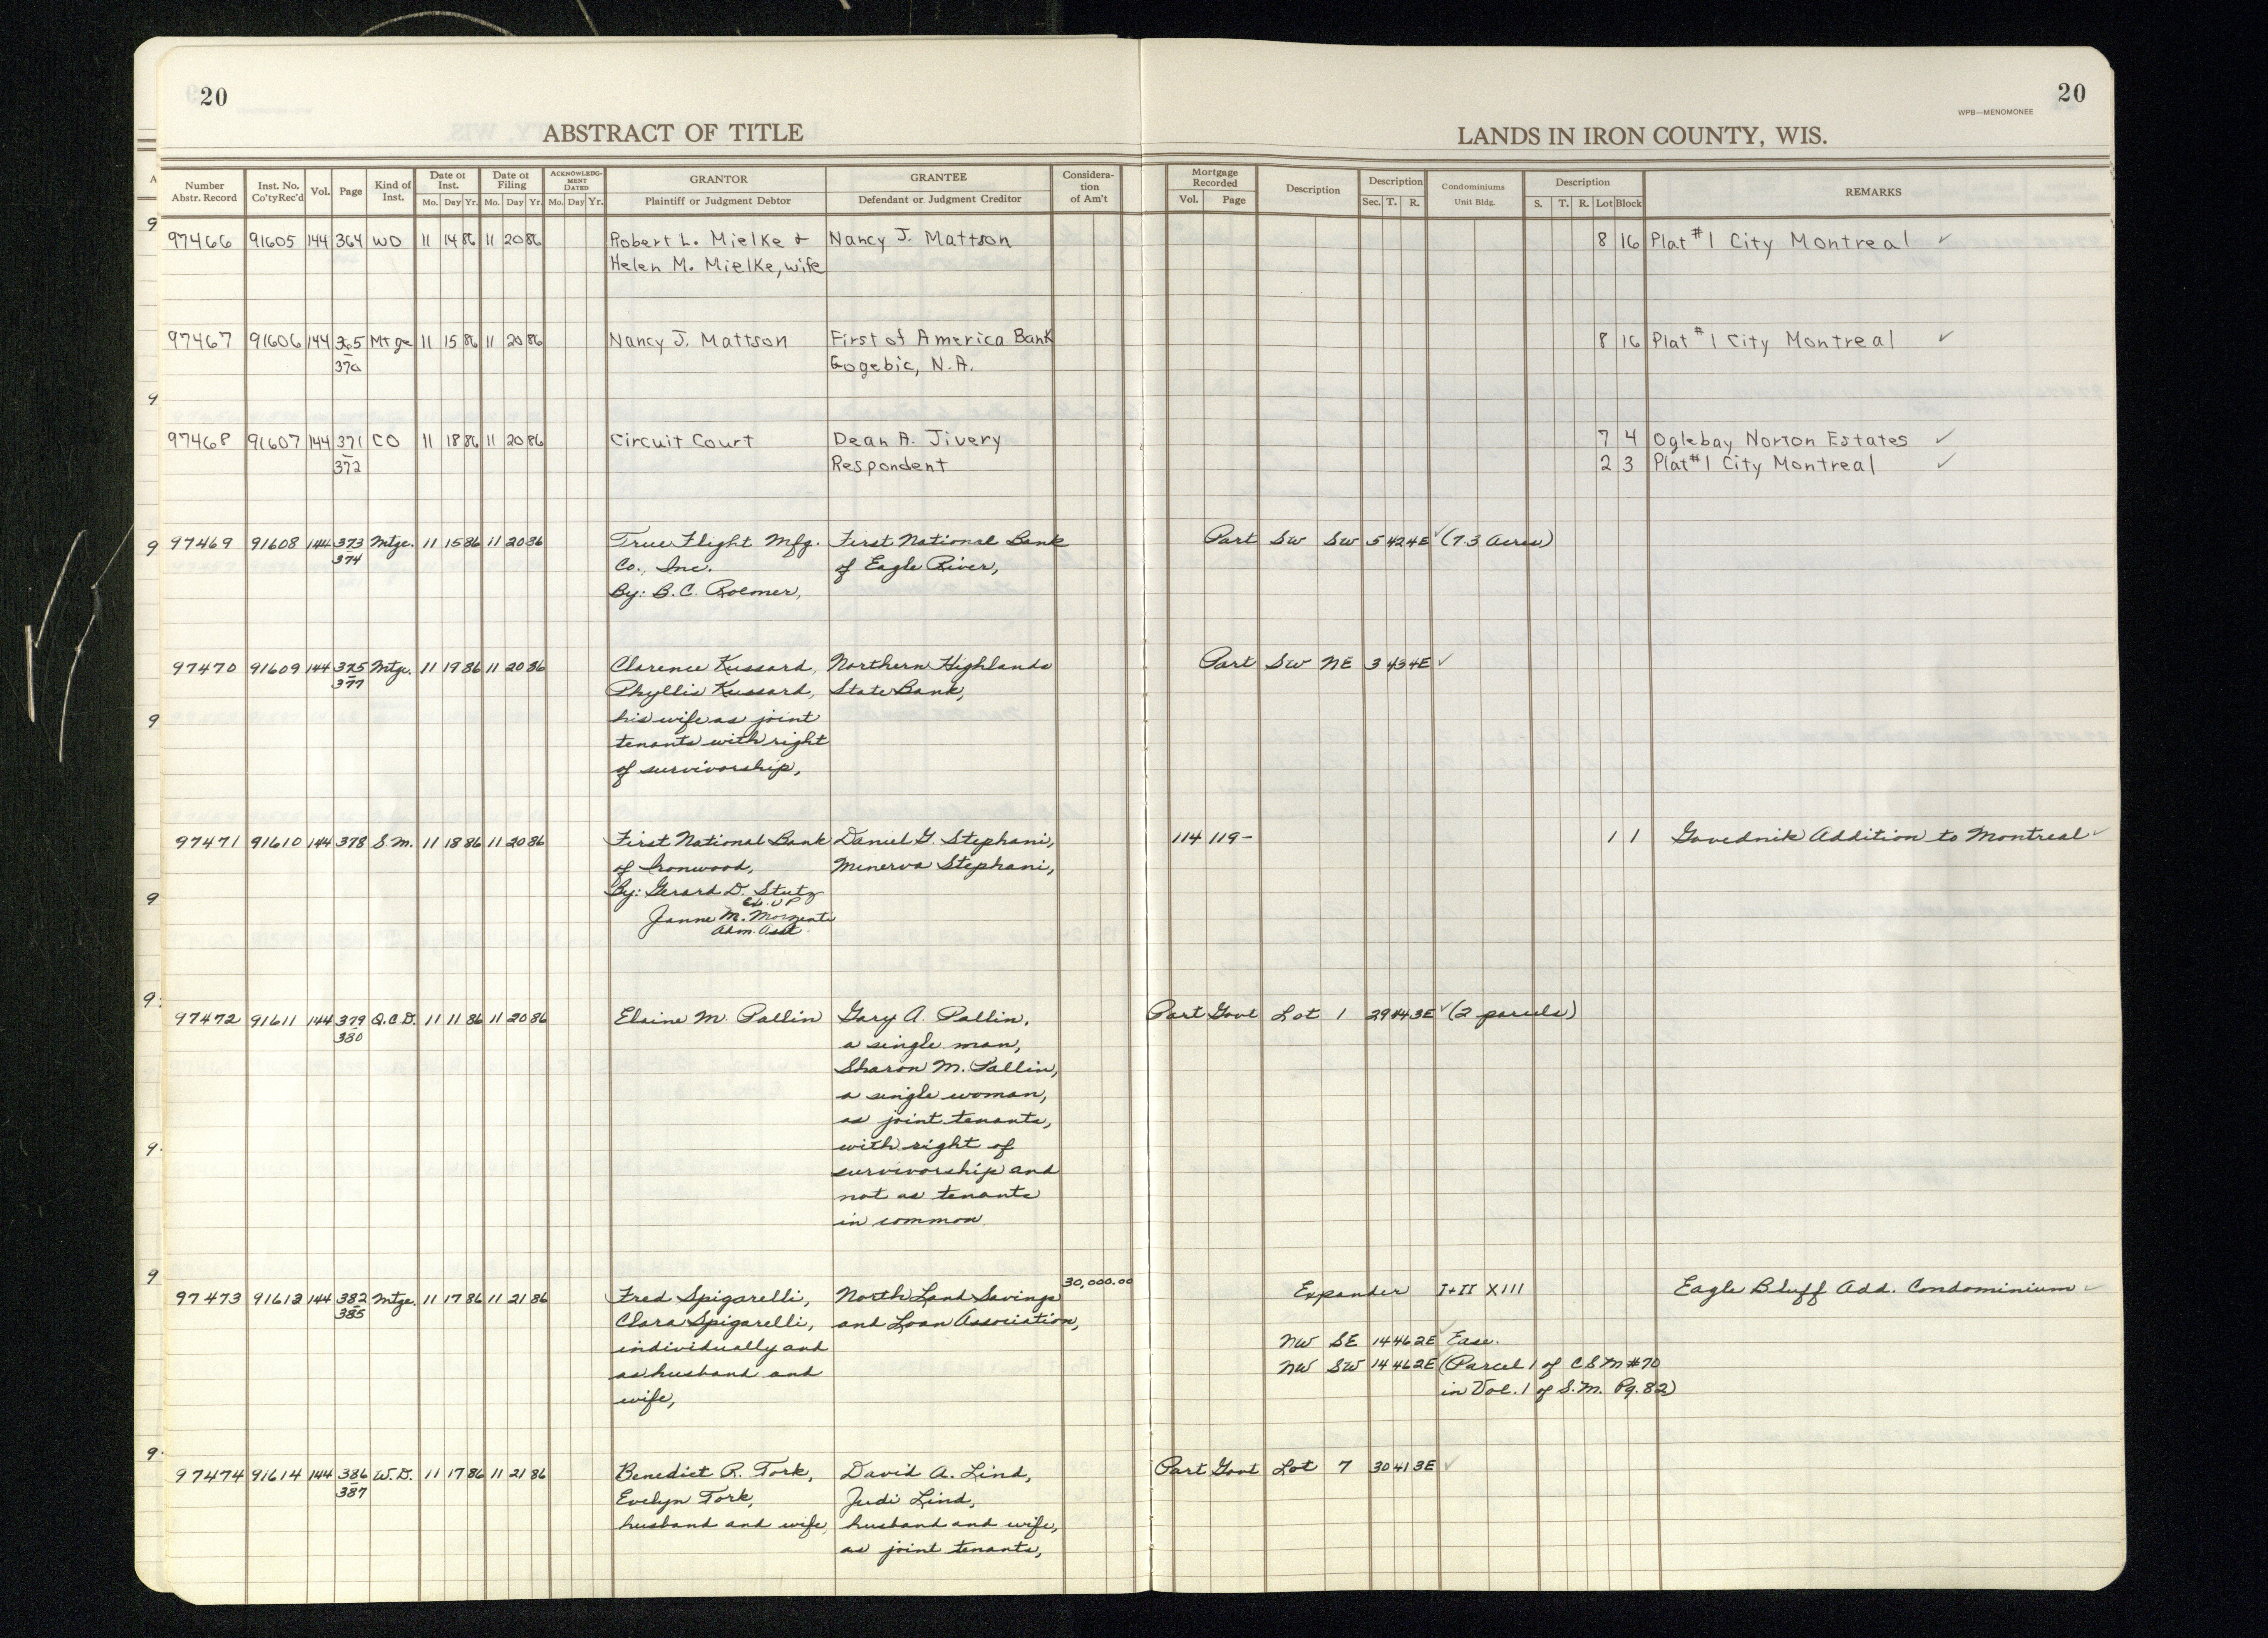 20
20
WPB—MENOMONEE
ABSTRACT OF TITLE
LANDS IN IRON COUNTY, WIS.
Number Abstr. Record
Inst. No. Co'ty Rec'd
Vol.
Page
Kind of Inst.
Date of Inst. Mo. Day Yr.
Date of Filing Mo. Day Yr.
ACKNOWLEDGMENT DATED Mo. Day Yr.
GRANTOR Plaintiff or Judgment Debtor
GRANTEE Defendant or Judgment Creditor
Consideration of Am't
Mortgage Recorded Vol. Page
Description
Description Sec. T. R.
Condominiums Unit Bldg.
Description S. T. R. Lot Block
REMARKS
97466 91605 144 364 WD 11 14 86 11 20 86 Robert L. Mielke & Nancy J. Mattson 8 16 Plat #1 City Montreal ✓
Helen M. Mielke, wife
97467 91606 144 365 Mtge 11 15 86 11 20 86 Nancy J. Mattson First of America Bank 8 16 Plat #1 City Montreal ✓
370 Gogebic, N.A.
97468 91607 144 371 CO 11 18 86 11 20 86 Circuit Court Dean A. Jivery 7 4 Oglebay Norton Estates ✓
372 Respondent 2 3 Plat #1 City Montreal ✓
97469 91608 144 373 Mtge. 11 15 86 11 20 86 True Flight Mfg. First National Bank Part SW SW 5 42 4E ✓ (7.3 Acres)
374 Co., Inc. of Eagle River,
By: B.C. Roemer,
97470 91609 144 375 Mtge. 11 19 86 11 20 86 Clarence Kussard, Northern Highlands Part SW NE 3 43 4E ✓
377 Phyllis Kussard, State Bank,
his wife as joint
tenants with right
of survivorship,
97471 91610 144 378 S.M. 11 18 86 11 20 86 First National Bank Daniel G. Stephani, 114 119- 1 1 Govednik Addition to Montreal ✓
of Ironwood, Minerva Stephani,
By: Gerard D. Stutz
Ex. V P
M.
Adm. Asst.
97472 91611 144 379 Q.C.D. 11 11 86 11 20 86 Elaine M. Pallin Gary A. Pallin, Part Govt Lot 1 29 44 3E ✓ (2 parcels)
380 a single man,
Sharon M. Pallin,
a single woman,
as joint tenants,
with right of
survivorship and
not as tenants
in common
30,000.00
97473 91613 144 382 Mtge. 11 17 86 11 21 86 Fred Spigarelli, North Land Savings Expander I+II XIII Eagle Bluff Add. Condominium ✓
385 Clara Spigarelli, and Loan Association,
individually and NW SE 14 46 2E ✓ Ease.
as husband and NW SW 14 46 2E (Parcel 1 of CSM #70
wife, in Vol. 1 of S.M. Pg. 82)
97474 91614 144 386 W.D. 11 17 86 11 21 86 Benedict R. Tork, David A. Lind, Part Govt Lot 7 30 41 3E ✓
387 Evelyn Tork, Judi Lind,
husband and wife, husband and wife,
as joint tenants,